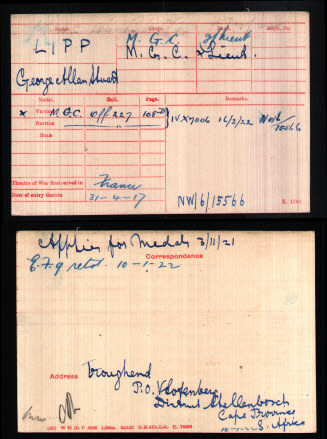 Name. Corps. Rank. Regtl. No.
LIPP M. G. C. 2/Lieut
M. G. C. x Lieut.
George Allan Stuart
Medal. Roll. Page. Remarks.
x Victory M.G.C. Off 227 108 IV X7006 16/2/22 NW/6/15566
British
Star
Theatre of War first served in France
Date of entry therein 31-4-17
NW/6/15566
Applies for Medals 3/11/21
Correspondence
E.F.9 retd. 10-1-22
Address Troughend
P.O. Vlottenberg
District Stellenbosch
Cape Province
10-1-22 S. Africa